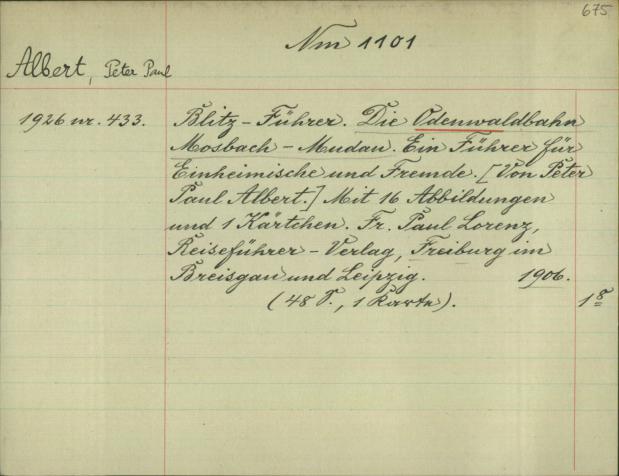 675
Nm 1101
Albert, Peter Paul
1926 nr. 433.
Blitz-Führer. Die Odenwaldbahn
Mosbach-Mudau. Ein Führer für
Einheimische und Fremde. [Von Peter
Paul Albert.] Mit 16 Abbildungen
und 1 Kärtchen. Fr. Paul Lorenz,
Reiseführer-Verlag, Freiburg im
Breisgau und Leipzig. 1906.
(48 S., 1 Karte). 1 8